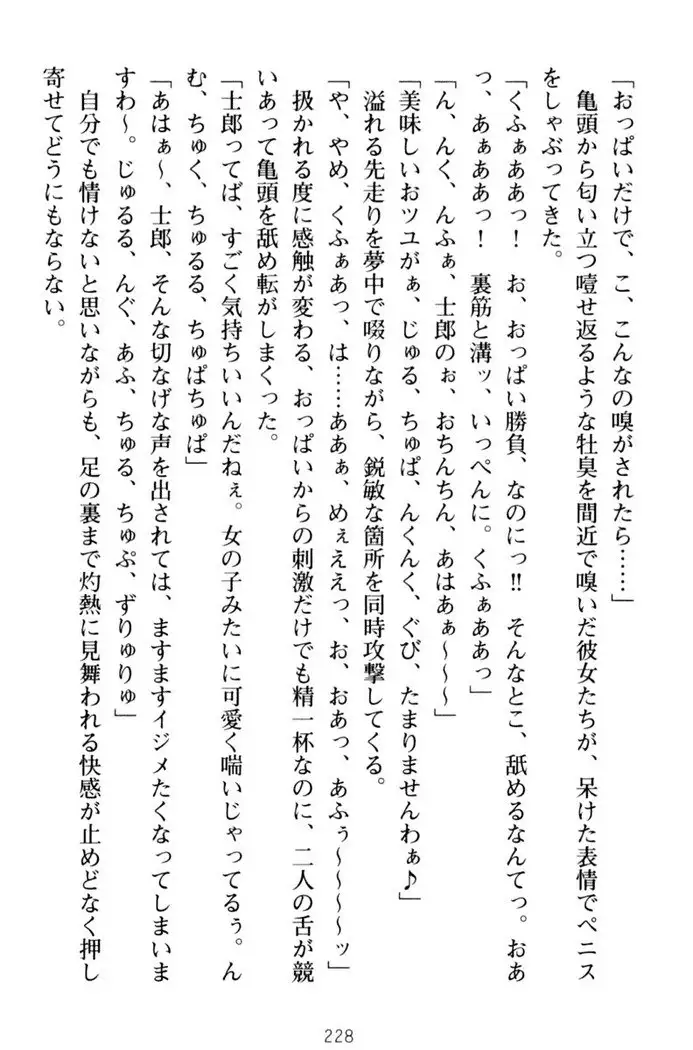 「おっぱいだけで、こ、こんなの嗅がされたら……」
　亀頭から匂い立つ噎せ返るような牡臭を間近で嗅いだ彼女たちが、呆けた表情でペニス
をしゃぶってきた。
「くふぁああっ！　お、おっぱい勝負、なのにっ‼　そんなとこ、舐めるなんてっ。おあ
っ、あぁああっ！　裏筋と溝ッ、いっぺんに。くふぁああっ」
「ん、んく、んふぁ、士郎のぉ、おちんちん、あはあぁ～～～」
「美味しいおツユがぁ、じゅる、ちゅぱ、んくんく、ぐび、たまりませんわぁ♪」
　溢れる先走りを夢中で啜りながら、鋭敏な箇所を同時攻撃してくる。
「や、やめ、くふぁあっ、は……ああぁ、めぇええっ、お、おあっ、あふぅ～～～～ッ」
　扱かれる度に感触が変わる、おっぱいからの刺激だけでも精一杯なのに、二人の舌が競
いあって亀頭を舐め転がしまくった。
「士郎ってば、すごく気持ちいいんだねぇ。女の子みたいに可愛く喘いじゃってるぅ。ん
む、ちゅく、ちゅるる、ちゅぱちゅぱ」
「あはぁ～、士郎、そんな切なげな声を出されては、ますますイジメたくなってしまいま
すわ～。じゅるる、んぐ、あふ、ちゅる、ちゅぷ、ずりゅりゅ」
　自分でも情けないと思いながらも、足の裏まで灼熱に見舞われる快感が止めどなく押し
寄せてどうにもならない。
228